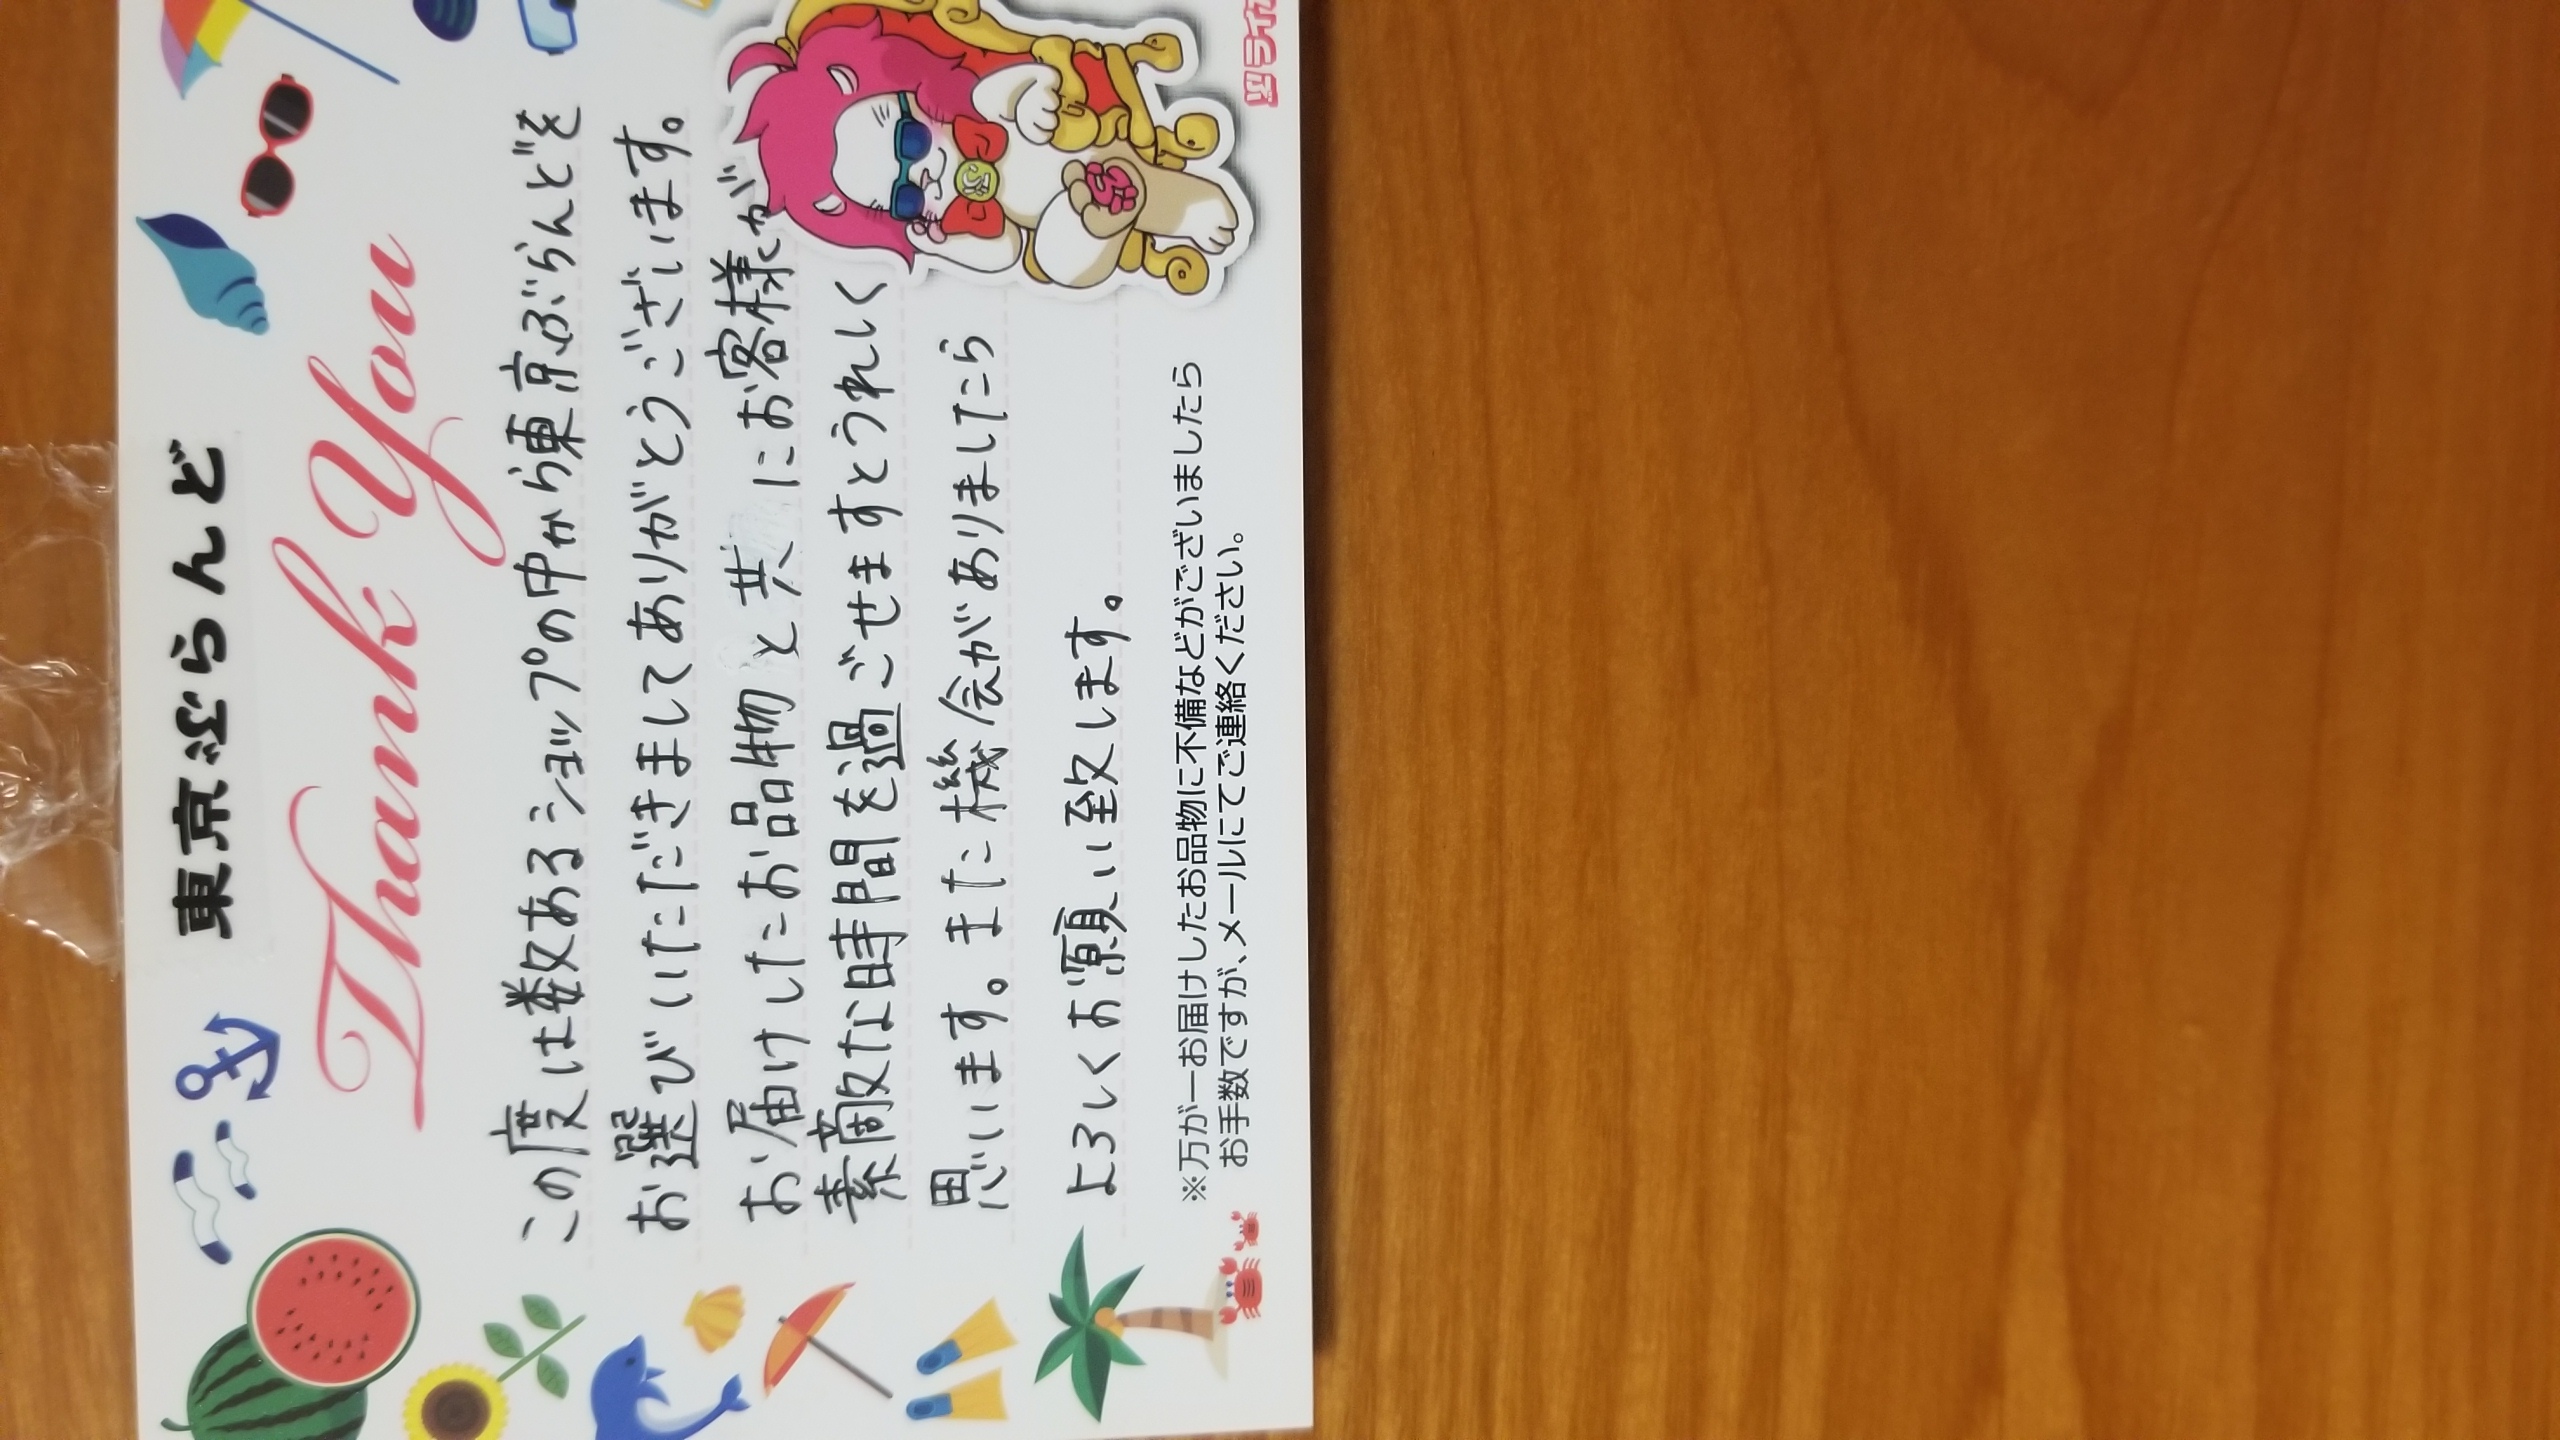 東京ぶらんど
Thank You
この度は数あるショップの中から東京ぶらんどを
お選びいただきましてありがとうございます。
お届けしたお品物と共にお客様が
素敵な時間を過ごせますとうれしく
思います。また機会がありましたら
よろしくお願い致します。
※万が一お届けしたお品物に不備などがございましたら
お手数ですが、メールにてご連絡ください。